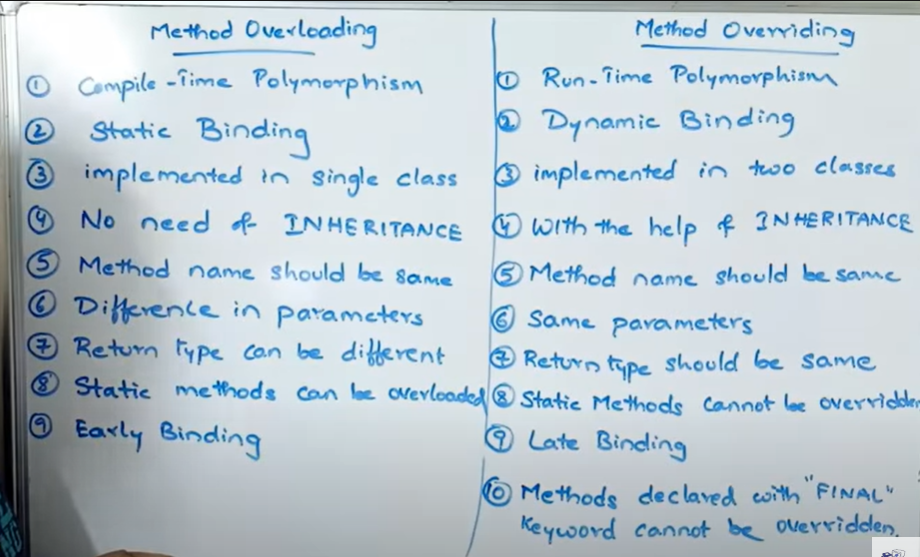 Method Overloading
① Compile-Time Polymorphism
② Static Binding
③ implemented in single class
④ No need of INHERITANCE
⑤ Method name should be same
⑥ Difference in parameters
⑦ Return type can be different
⑧ Static methods can be overloaded
⑨ Early Binding
Method Overriding
① Run-Time Polymorphism
② Dynamic Binding
③ implemented in two classes
④ With the help of INHERITANCE
⑤ Method name should be same
⑥ Same parameters
⑦ Return type should be same
⑧ Static Methods cannot be overridden
⑨ Late Binding
⑩ Methods declared with "FINAL"
Keyword cannot be overridden.